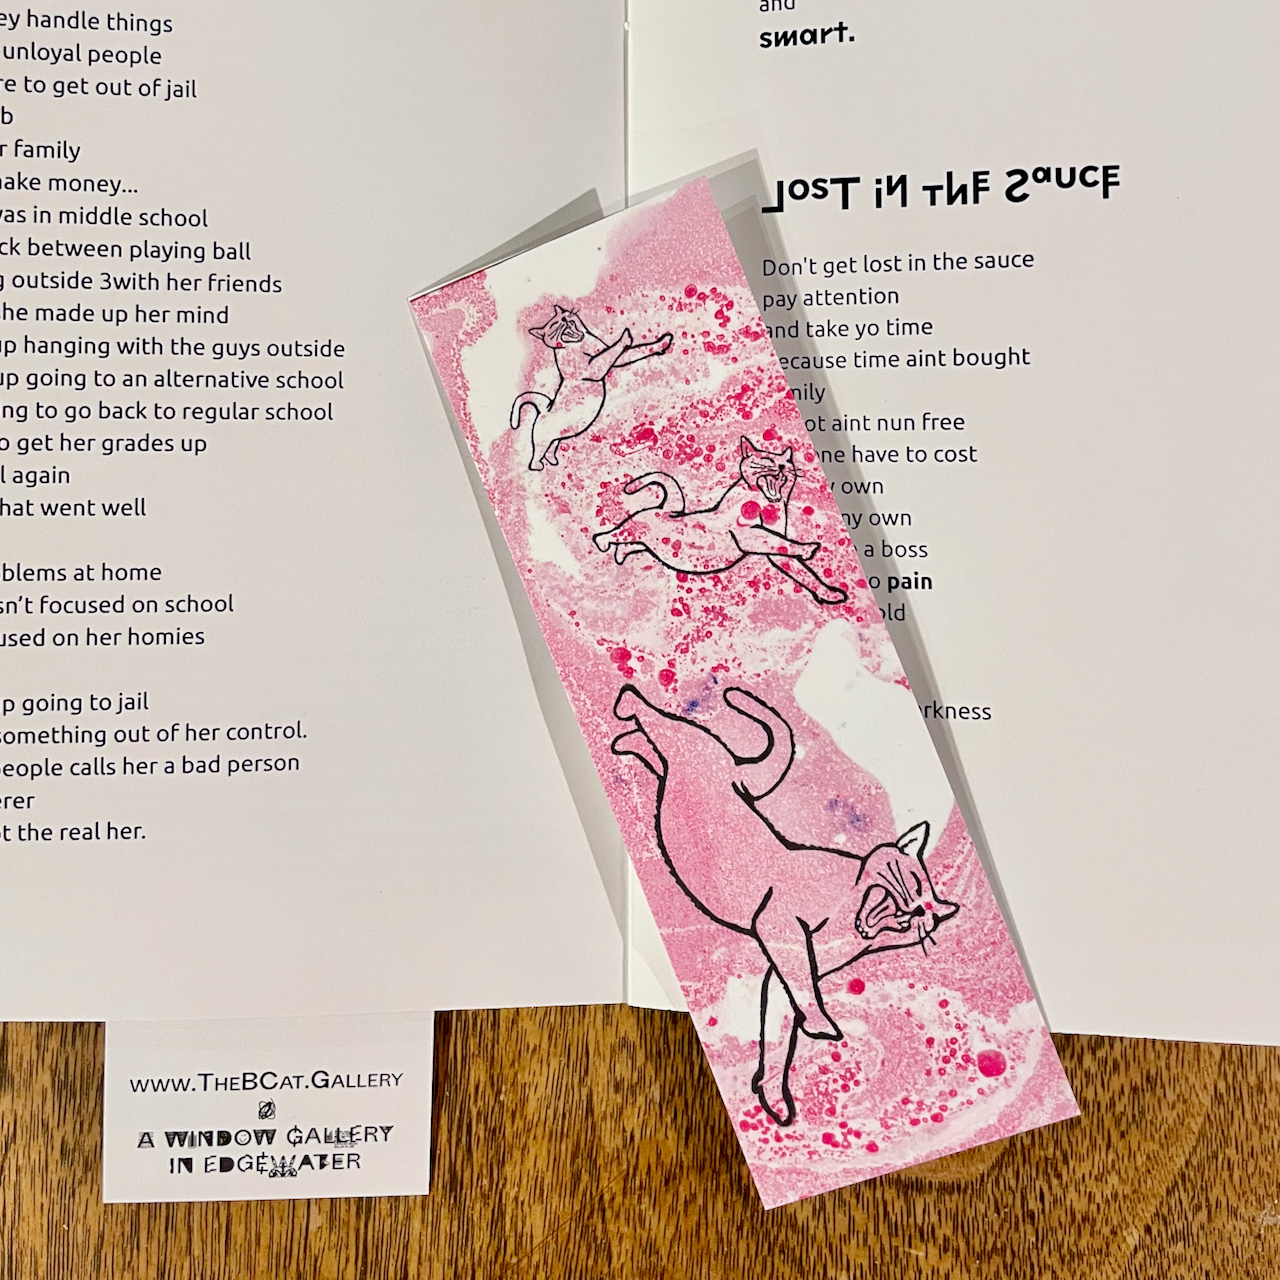 ey handle things
unloyal people
re to get out of jail
b
r family
ake money...
as in middle school
ck between playing ball
g outside 3with her friends
he made up her mind
up hanging with the guys outside
up going to an alternative school
ng to go back to regular school
o get her grades up
l again
hat went well
blems at home
sn’t focused on school
used on her homies
p going to jail
something out of her control.
people calls her a bad person
erer
t the real her.
and
smart.
LosT iN THE SaucE
Don't get lost in the sauce
pay attention
and take yo time
ecause time aint bought
mily
ot aint nun free
ne have to cost
own
my own
a boss
o pain
old
rkness
www.TheBCat.Gallery
@
A WINDOW GALLERY
IN EDGEWATER